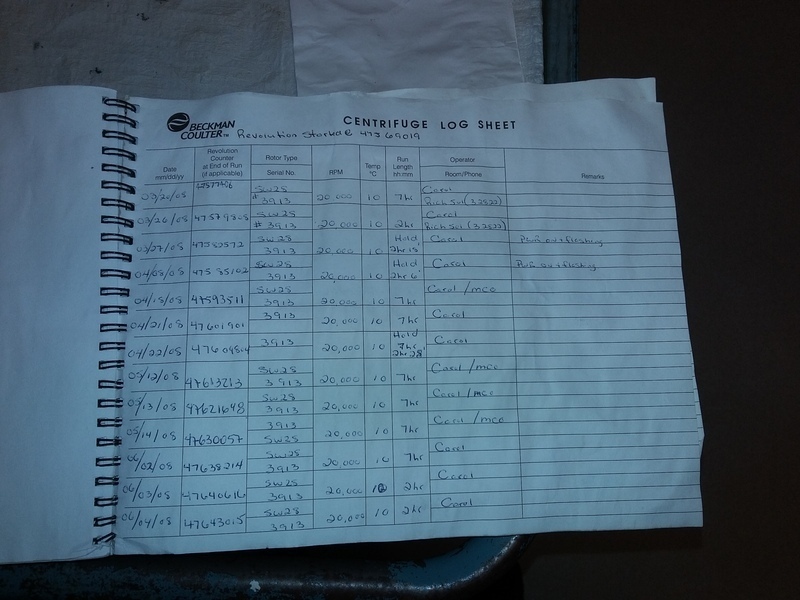 BECKMAN COULTER™
CENTRIFUGE LOG SHEET
Revolution
Date mm/dd/yy
Revolution Counter at End of Run (if applicable)
Rotor Type
Serial No.
RPM
Temp °C
Run Length hh:mm
Operator
Room/Phone
Remarks
03/20/08 SW28 # 3913 20,000 10 7hr Carol
03/26/08 SW28 # 3913 20,000 10 2hr Carol
03/27/08 47582572 SW28 3913 20,000 10 Hold Carol
04/08/08 47585102 SW28 3913 20,000 10 Hold Carol
04/15/08 47593511 SW28 3913 20,000 10 7hr Carol/mco
04/21/08 47601901 3913 20,000 10 7hr Carol
04/22/08 3913 20,000 10 Hold 7hr 2hr 28 Carol
05/12/08 47613213 SW28 3913 20,000 10 7hr Carol/mco
05/13/08 47621648 SW28 3913 20,000 10 7hr Carol/mco
05/14/08 47630057 3913 SW28 20,000 10 7hr Carol/mco
06/02/08 47638214 SW28 3913 20,000 10 7hr Carol
06/03/08 47640616 SW28 3913 20,000 10 2hr Carol
06/04/08 47643015 SW28 3913 20,000 10 2hr Carol